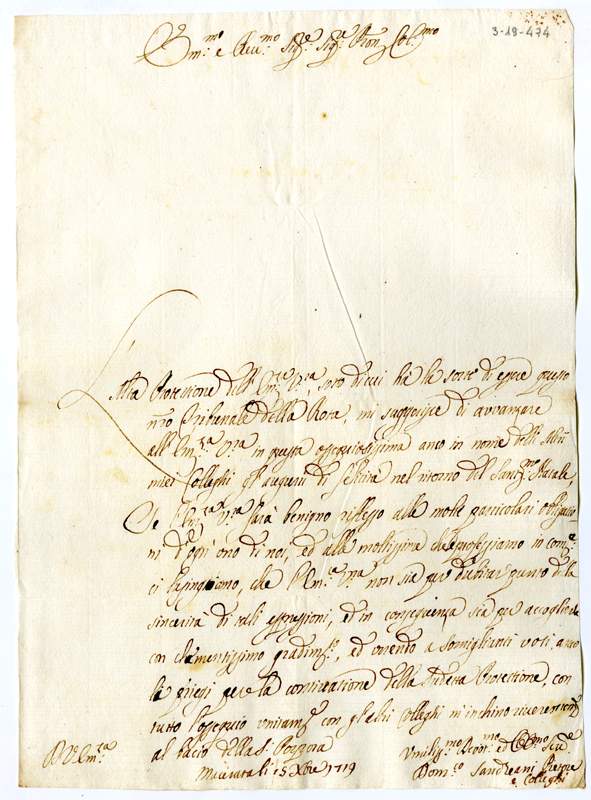 3-19-474
Em.mo e Rev.mo Sig.re Sig.re Pron Col.mo
Alla Protettione dell'Em.za V.ra, sotto di cui hà la sorte di essere questo
nro Tribunale della Rota, mi suggerisce di avvanzare
all'Em.za V.ra in questa ossequiosissima anco in nome delli Altri
miei Colleghi gl'augurij di felicità nel ritorno del Sant.mo Natale
Se l'Em.za V.ra farà benigno riflesso alle molte particolari obligatio
ni d'ogni uno di noi, ed alla moltissima che professiamo in com.e
ci lusinghiamo, che l'Em.a V.ra non sia per dubitar punto della
sincerità di tali espressioni, ed in conseguenza sia per accoglierle
con clementissimo gradim.to, ed unendo a somiglianti voti anco
li prieghi per la continuatione della sudetta Protettione, con
tutto l'ossequio unitam.e con gl'altri Colleghi m'inchino riverentem.e
al bacio della S. Porpora
D V. Em.za
Macerata li 15 Xbre 1719
Umiliss.mo Devot.mo ed Obb.mo Ser.e
Dom.co Sandreani Pretore
e Colleghi